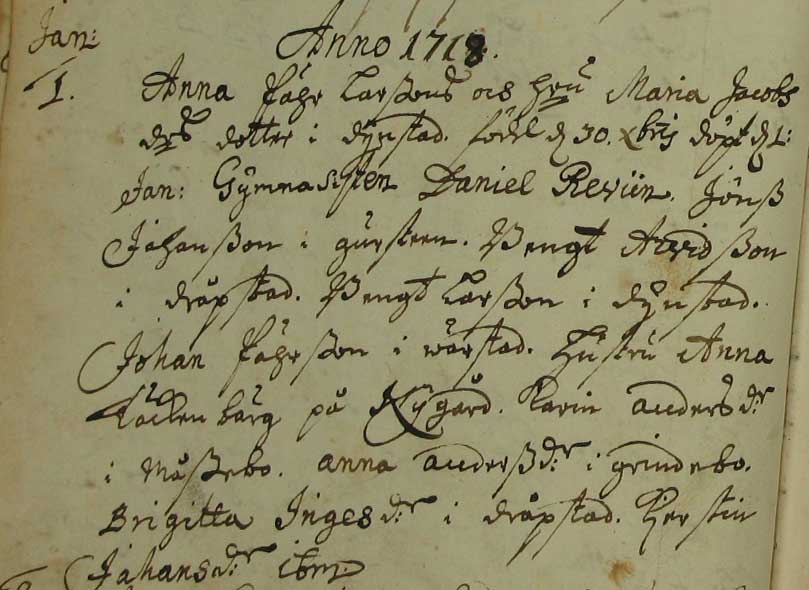 Jan: Anno 1718.
1. Anna Påhr Larßons och hru Maria Jacobs
drs dotter i dynstad. född d 30. Xbris döpt d 1:
Jan: Gymnasisten Daniel Reviin. Jönß
Johanßon i gursteen. Bengt Arvidßon
i dråpstad. Bengt Larßon i dynstad.
Johan Påhrßon i wårstad. Hustru Anna
på Nygård. Karin anders dr
i Måßebo. anna anderß dr i grindebo.
Brigitta Inges dr i dråpstad. Kerstin
Johans dr ibm